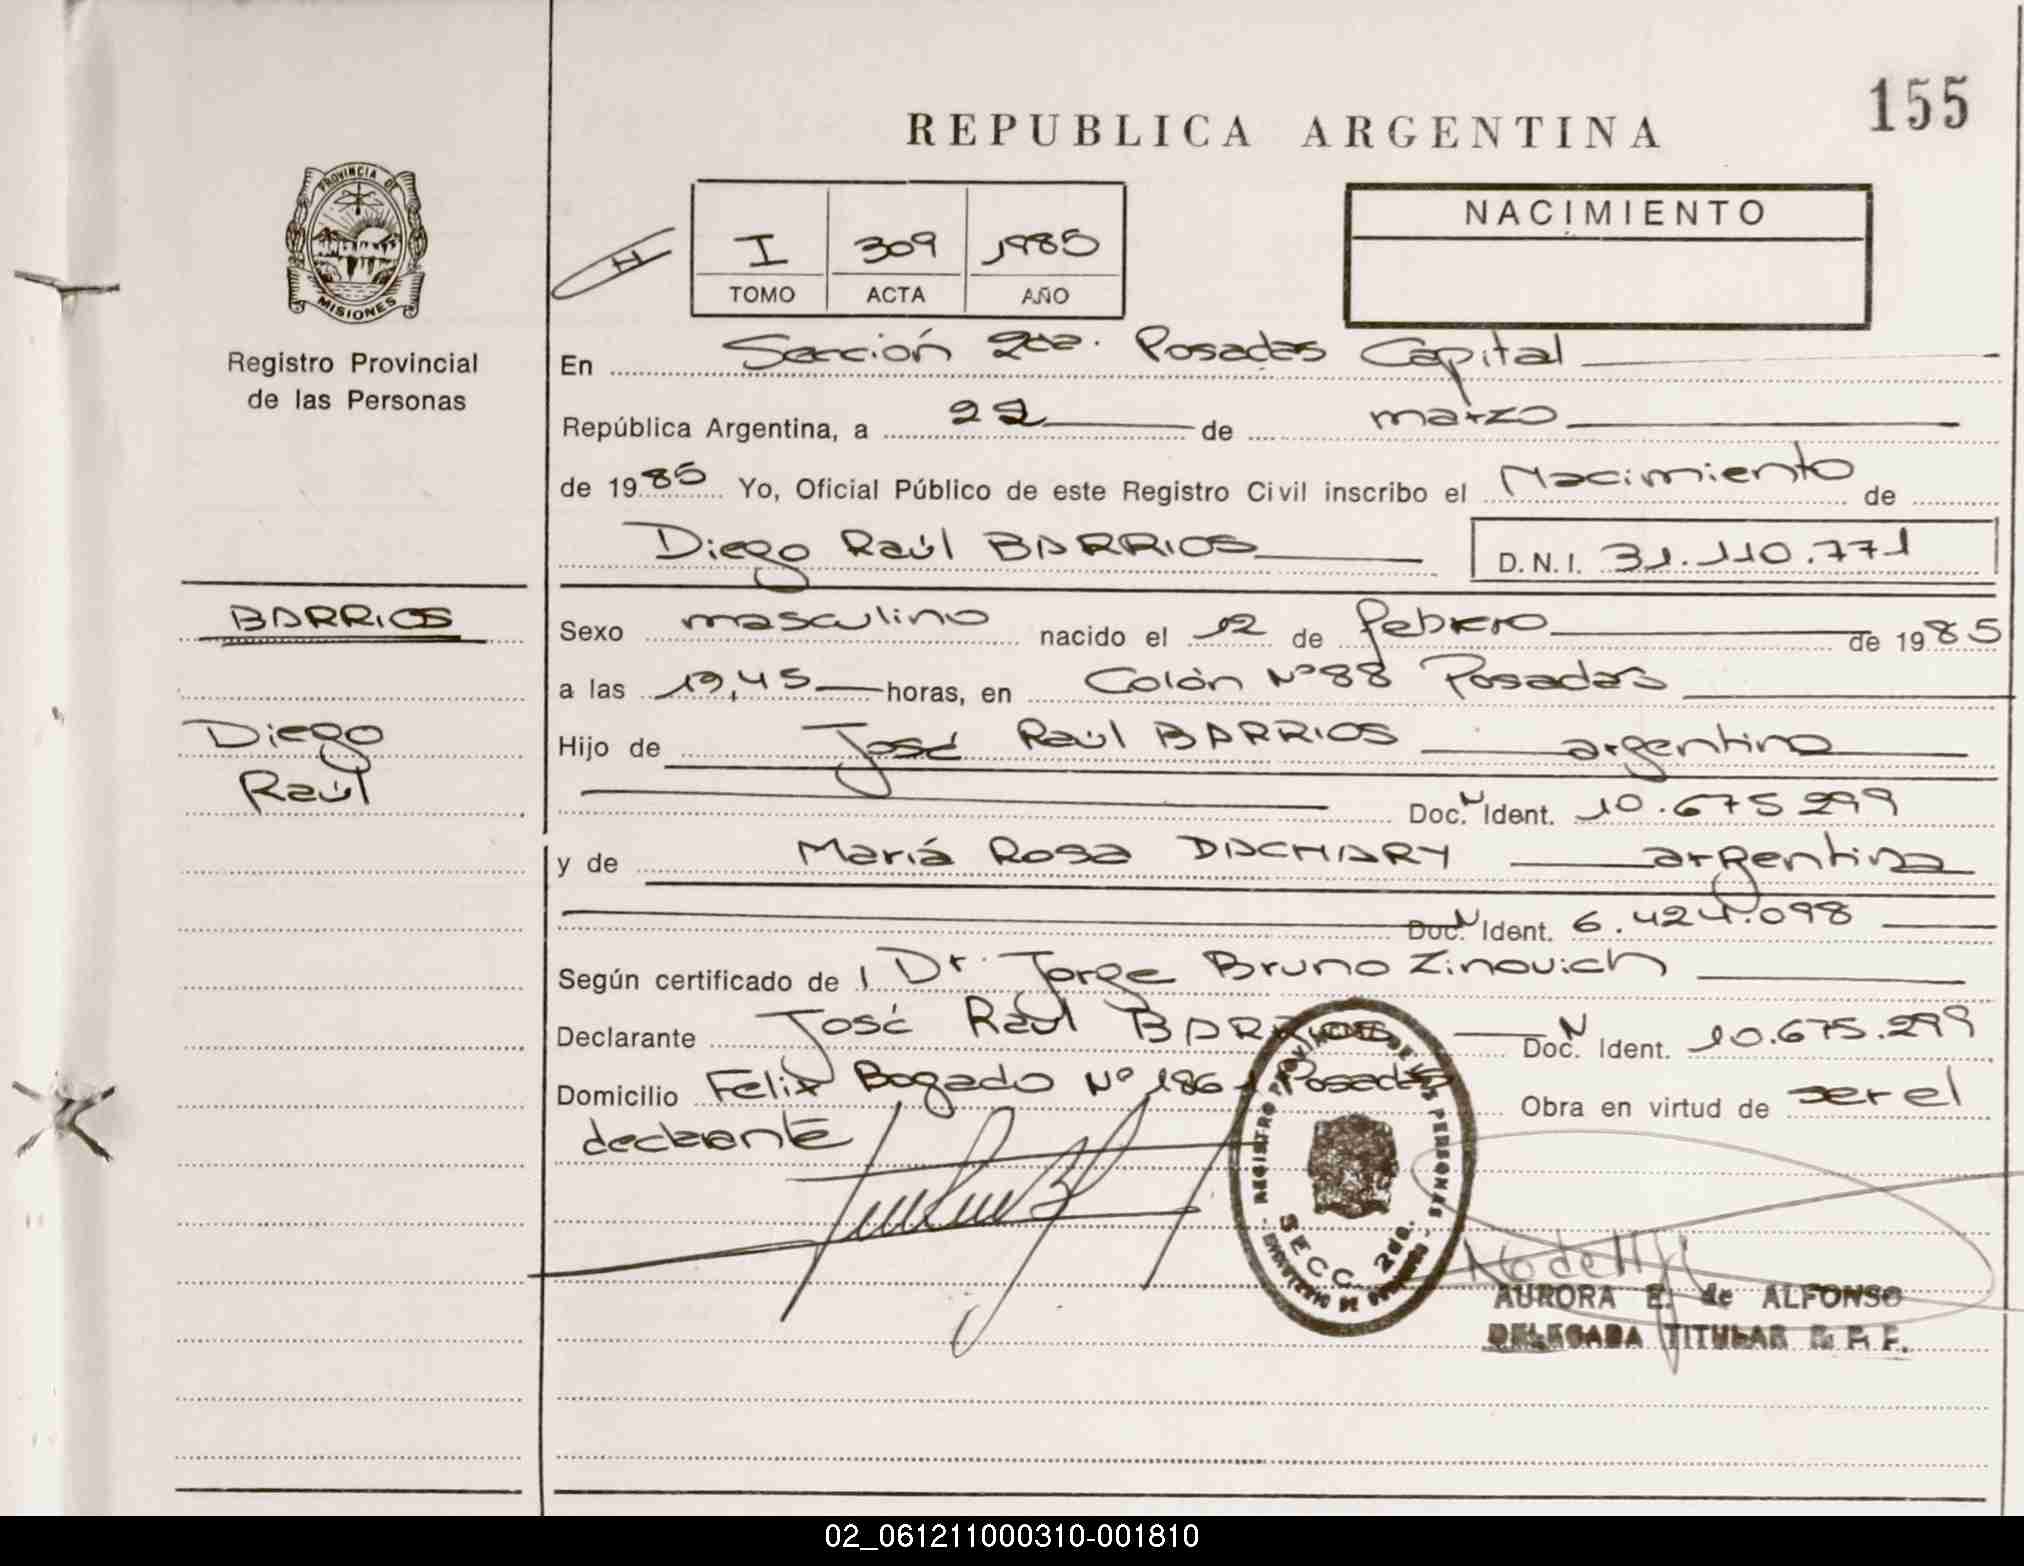 155
REPUBLICA ARGENTINA
PROVINCIA DE
MISIONES
Registro Provincial
de las Personas
H
I 309 1985
TOMO ACTA AÑO
NACIMIENTO
En Sección 2da. Posadas Capital
República Argentina, a 22 de marzo
de 1985 Yo, Oficial Público de este Registro Civil inscribo el Nacimiento de
Diego Raúl BARRIOS D.N.I. 31.110.771
BARRIOS
Diego
Raúl
Sexo masculino nacido el 12 de febrero de 1985
a las 19,45 horas, en Colón Nº 88 Posadas
Hijo de José Raúl BARRIOS argentino
Doc. N Ident. 10.675299
y de Mariá Rosa DACHARY argentina
Doc. N Ident. 6.424.098
Según certificado de Dr. Jorge Bruno Zinovich
Declarante José Raúl BARRIOS Doc. N Ident. 10.675.299
Domicilio Felix Bogado Nº 1861 Posadas Obra en virtud de ser el
declarante
REGISTRO PROVINCIAL DE LAS PERSONAS
SECC. 2da.
MINISTERIO DE GOBIERNO
AURORA E. de ALFONSO
DELEGADA TITULAR R. P. P.
02_061211000310-001810